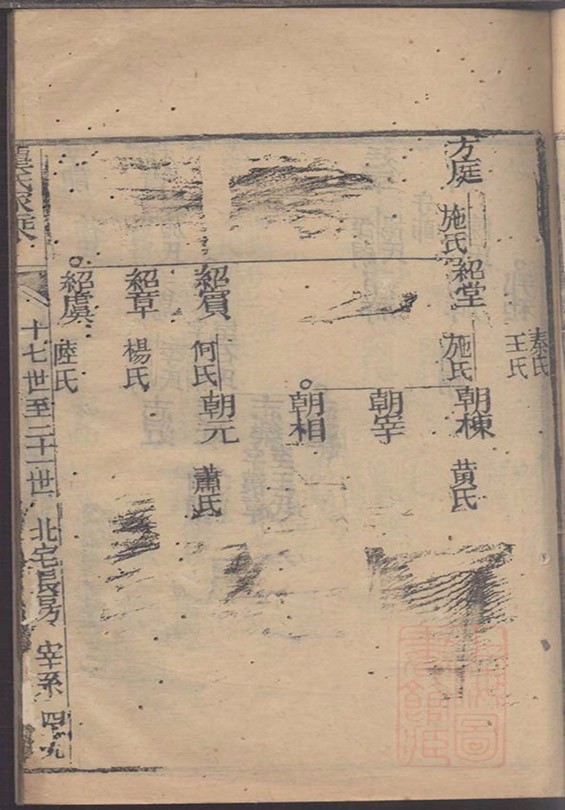 秦氏
王氏
方庭
施氏
紹堂
施氏
朝棟
黃氏
朝宰
朝相
紹賓
何氏
朝元
蕭氏
紹章
楊氏
紹虞
陸氏
十七世至二十一世
北宅長房
宰系
四九